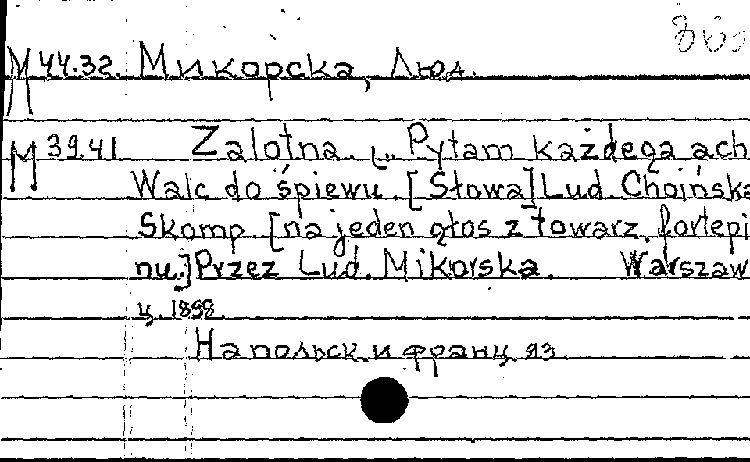 M 44.32. Микорска, Люд.
M 39.41 Zalotna. „Pytam każdega ach
Walc do śpiewu. [Słowa] Lud. Choińska
Skomp. [na jeden głos z towarz. fortepi
nu.] Przez Lud. Mikorska. Warszaw
ц. 1898.
На польск. и франц. яз.